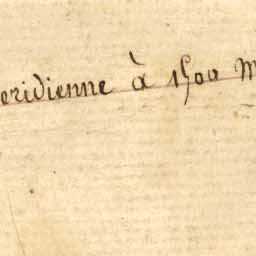 eridienne à 1500 m